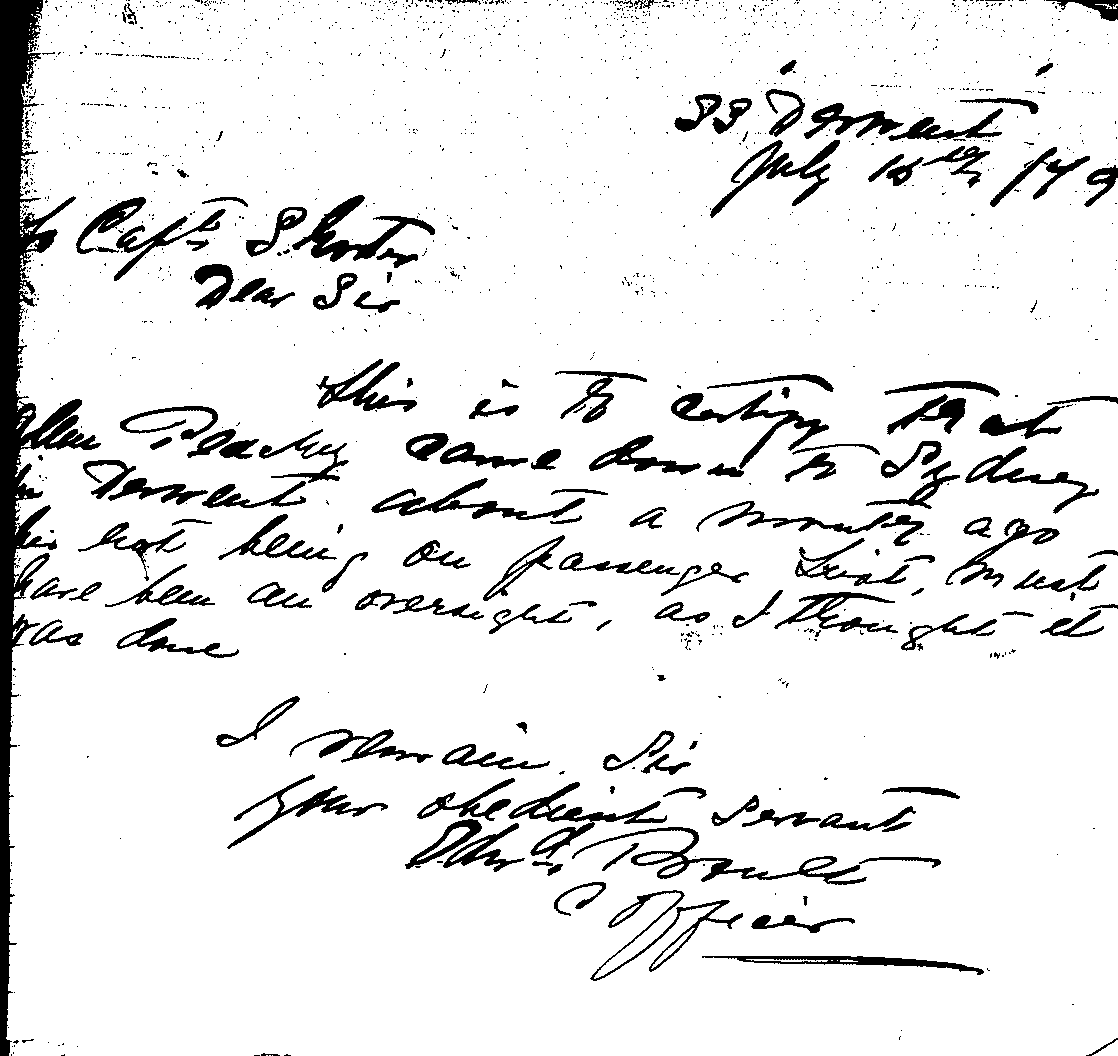 SS "Derwent"
July 15th / 79
To Capt. Shorter
Dear Sir
This is to certify that
Allen Peachy came down to Sydney
in Derwent about a month ago
his not being on passenger List, must
have been an oversight, as I thought it
was done
I remain Sir
Your obedient Servant
Edwd. Boult
C Officer